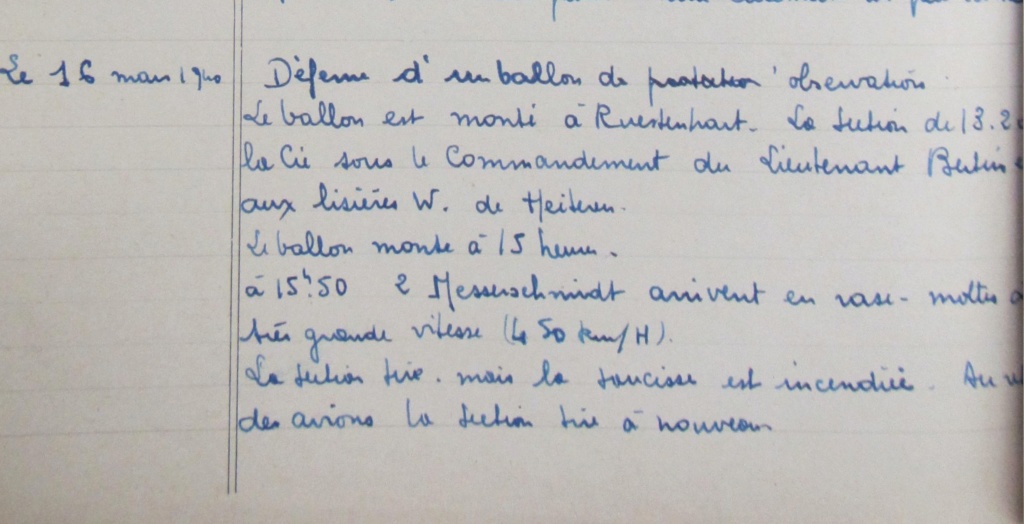 Le 16 mars 1940 Défense d'un ballon de protection d'observation
Le ballon est monté à Ruestenhart. La section de 13.2
la Cie sous le Commandement du Lieutenant Bertin
aux lisières W. de Heiteren.
Le ballon monte à 15 heures.
à 15h50 2 Messerschmidt arrivent en rase-mottes
très grande vitesse (450 km/H).
La section tire. mais la saucisse est incendiée. Au
des avions la section tire à nouveau